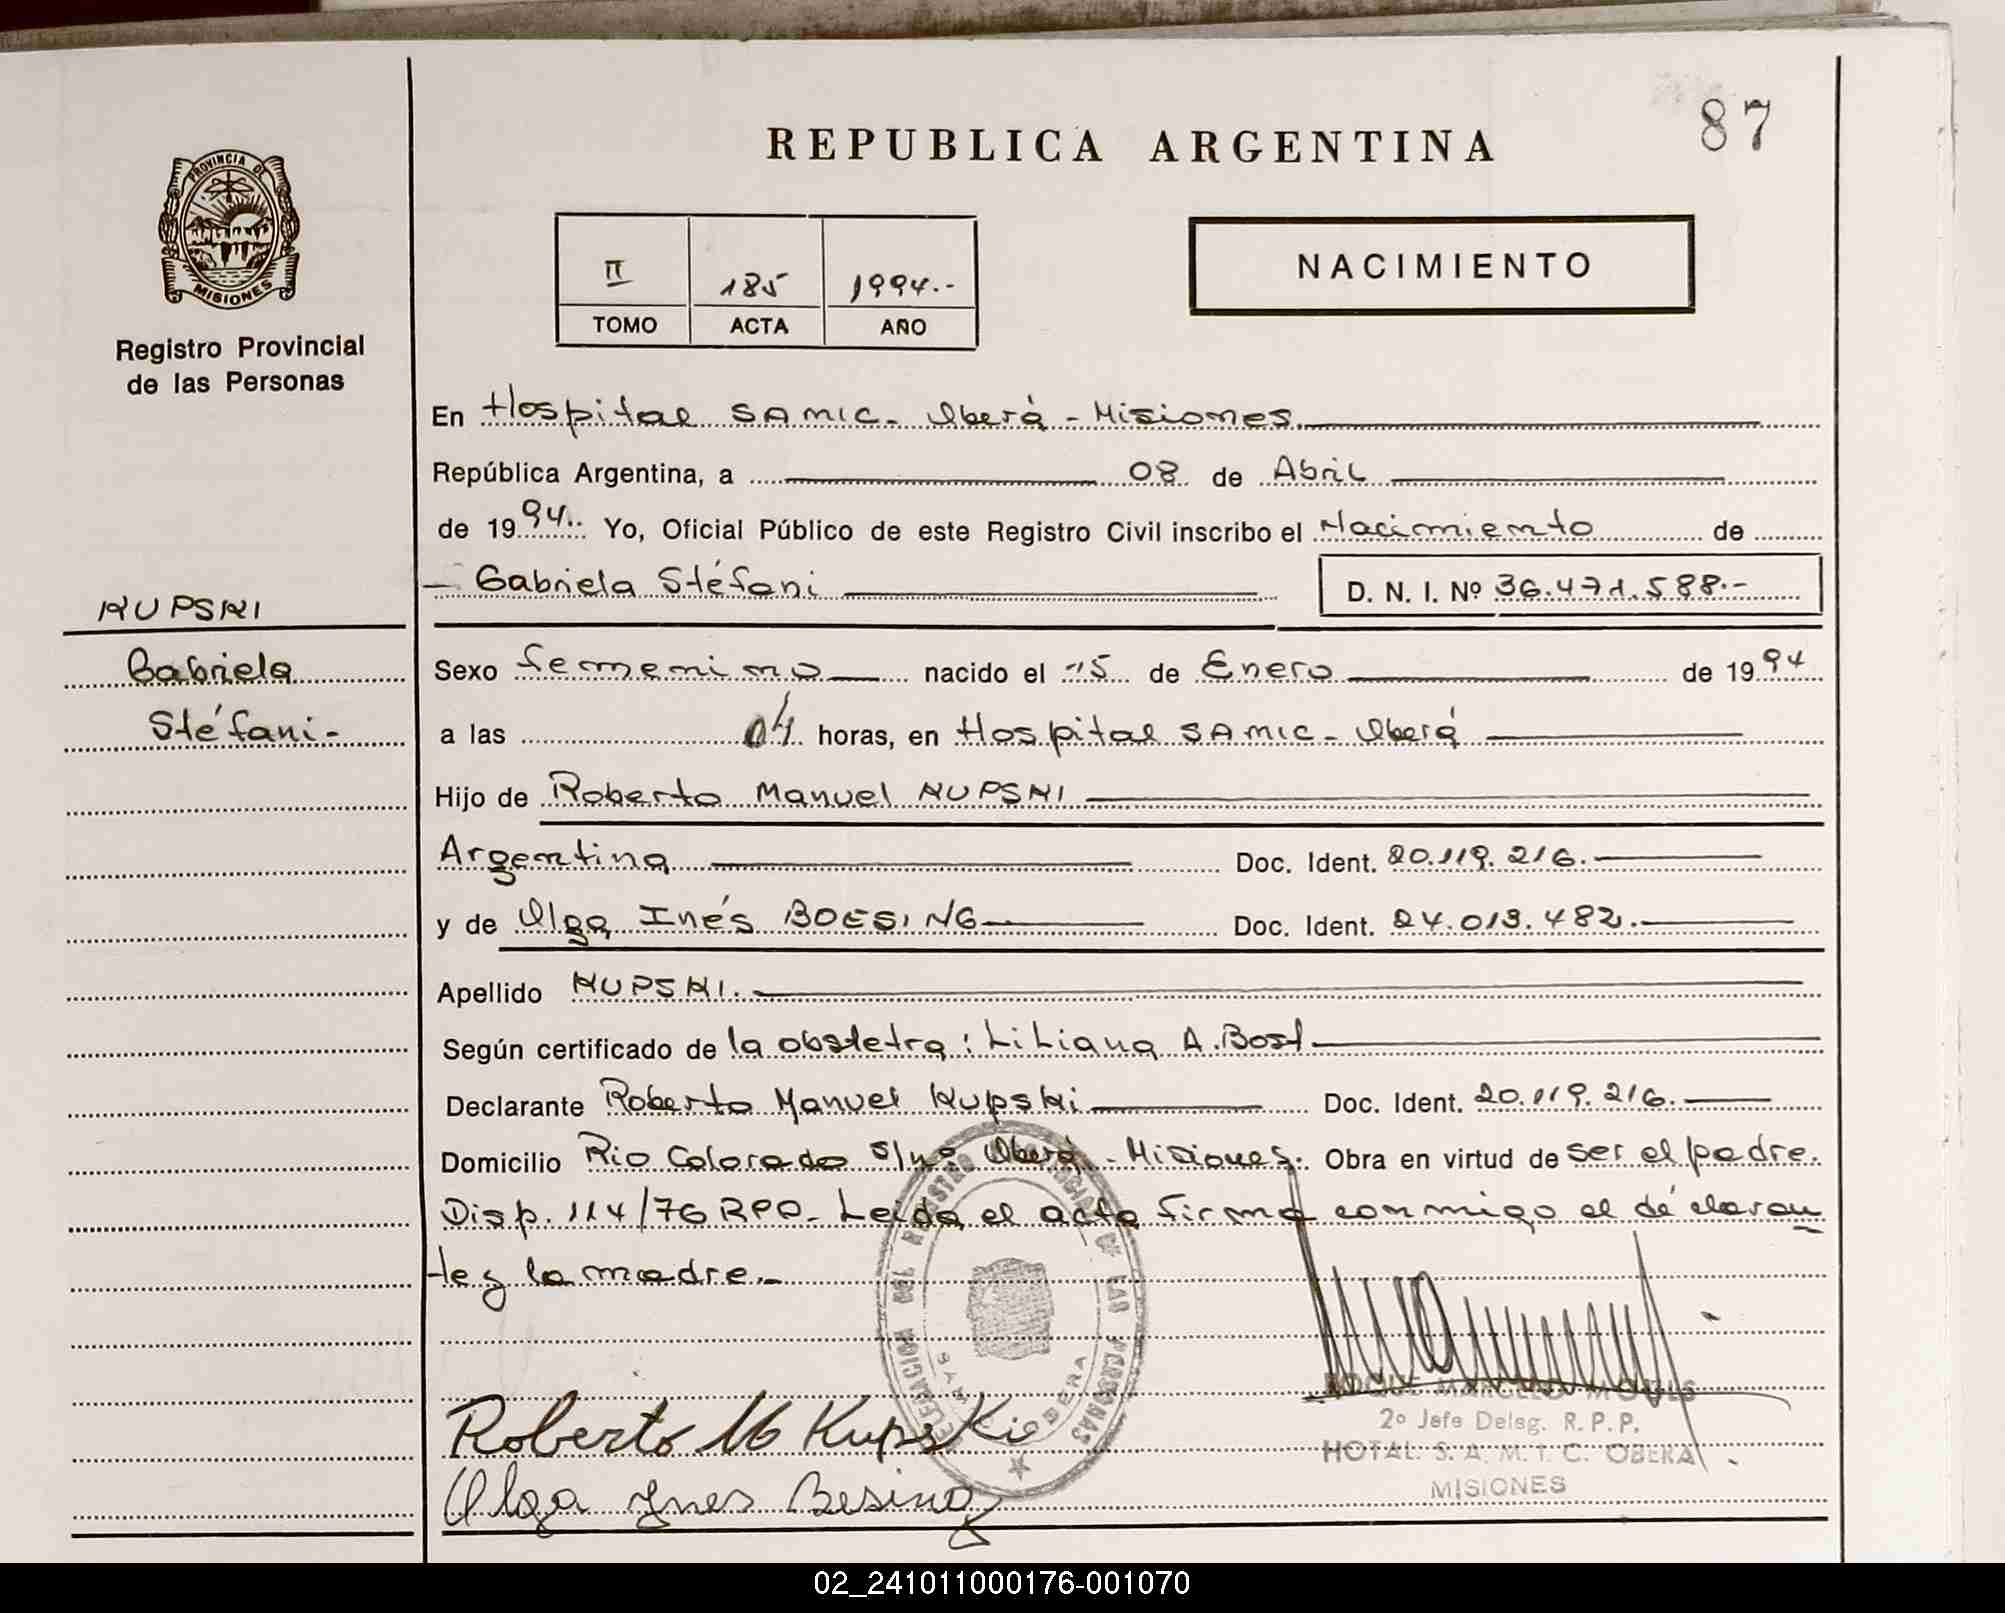 87
REPUBLICA ARGENTINA
PROVINCIA DE
MISIONES
Registro Provincial
de las Personas
II 185 1994.-
TOMO ACTA AÑO
NACIMIENTO
En Hospital SAMIC - Oberá - Misiones
República Argentina, a 08 de Abril
de 1994.. Yo, Oficial Público de este Registro Civil inscribo el Nacimiento de
- Gabriela Stéfani D. N. I. Nº 36.471.588.-
KUPSKI
Gabriela
Stéfani-
Sexo femenino nacido el 15 de Enero de 1994
a las 04 horas, en Hospital SAMIC - Oberá
Hijo de Roberto Manuel KUPSKI
Argentina Doc. Ident. 20.119.216.
y de Olga Inés BOESING Doc. Ident. 24.013.482.
Apellido KUPSKI.
Según certificado de la obstetra: Liliana A. Bost
Declarante Roberto Manuel Kupski Doc. Ident. 20.119.216.
Domicilio Rio Colorado s/nº Oberá - Misiones. Obra en virtud de ser el padre.
Disp. 114/76 RPP - Leida el acta firma conmigo el déclaran
te y la madre.-
DELEGACION DEL REGISTRO DE LAS PERSONAS
OBERA
Roberto M Kupski
Olga Ynes Besing
ROQUE MARCELO
2º Jefe Deleg. R. P. P.
HOTAL. S. A. M. I. C. OBERA
MISIONES
02_241011000176-001070